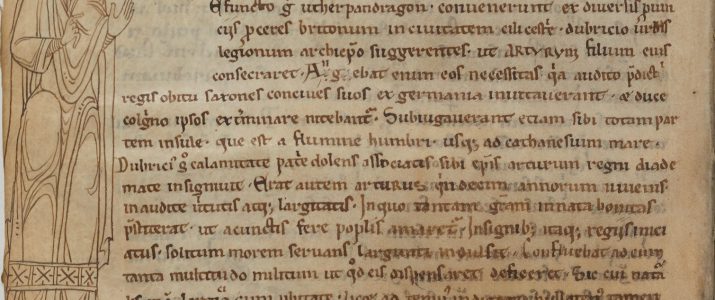 efuncto g̉ utherpandragon. convenerunt ex diversis provin
ciis p̃ceres britonum in civitatem cilcestr̃. dubricio urbis
legionum archiep̃o suggerentes. ut ARTVRVM filium eius
consecraret. Augebat enim eos necessitas. q̉a audito p̃dicti
regis obitu saxones concives suos ex germania invitaverant. & duce
colgrino ipsos ex̉minare nitebant̉. Subiugaverant etiam sibi totam par
tem insule. que est a flumine humbri. usq; ad cathanesium mare.
Dubrici⁹ g̉ calamitate pat̃e dolens. associatis sibi ep̃is arturum regni diade
mate insignivit. Erat autem arturus q̉ndecim annorum iuvenis.
inaudite v̉tutis atq; largitatis. In quo tantam gr̃am innata bonitas
p̃stiterat. ut a cunctis fere poplis amaret̉. Insignib; itaq; regiis inici
atus. solitum morem servans largitati indulsit. Confluebat ad eum
tanta multitudo militum ut q̉d eis dispensaret deficeret. Sic cui nat̃a